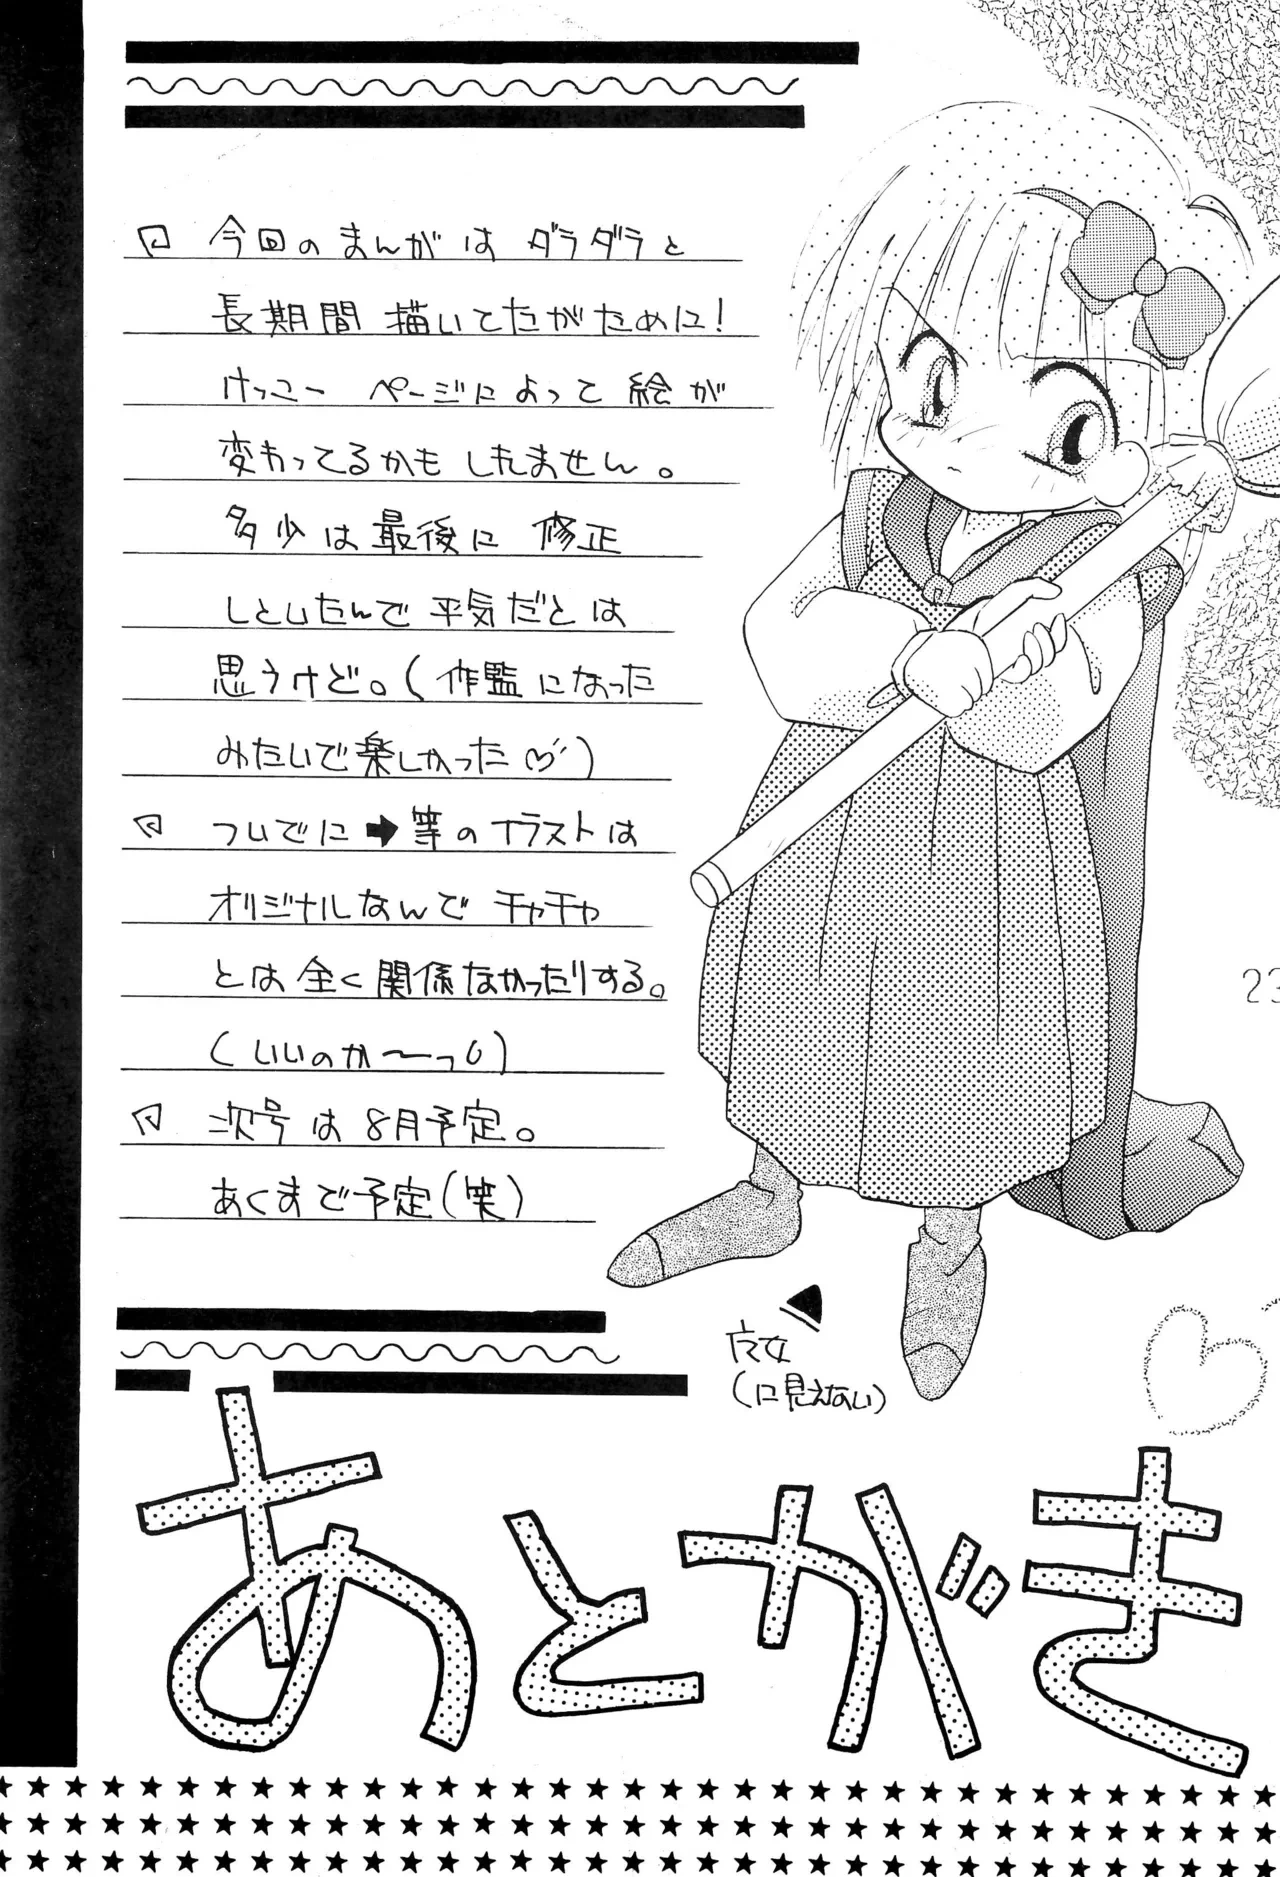 今回のまんがは ダラダラと
長期間 描いてたがために!
けっこー ページによって 絵が
変わってるかも しれません。
多少は最後に 修正
しといたんで 平気だとは
思うけど。(作監になった
みたいで楽しかった♡)
ついでに➡等のイラストは
オリジナルなんで チャチャ
とは 全く 関係なかったりする。
(いいのか〜〜っ)
次号は 8月予定。
あくまで予定(笑)
23
(に見えない)
あとがき